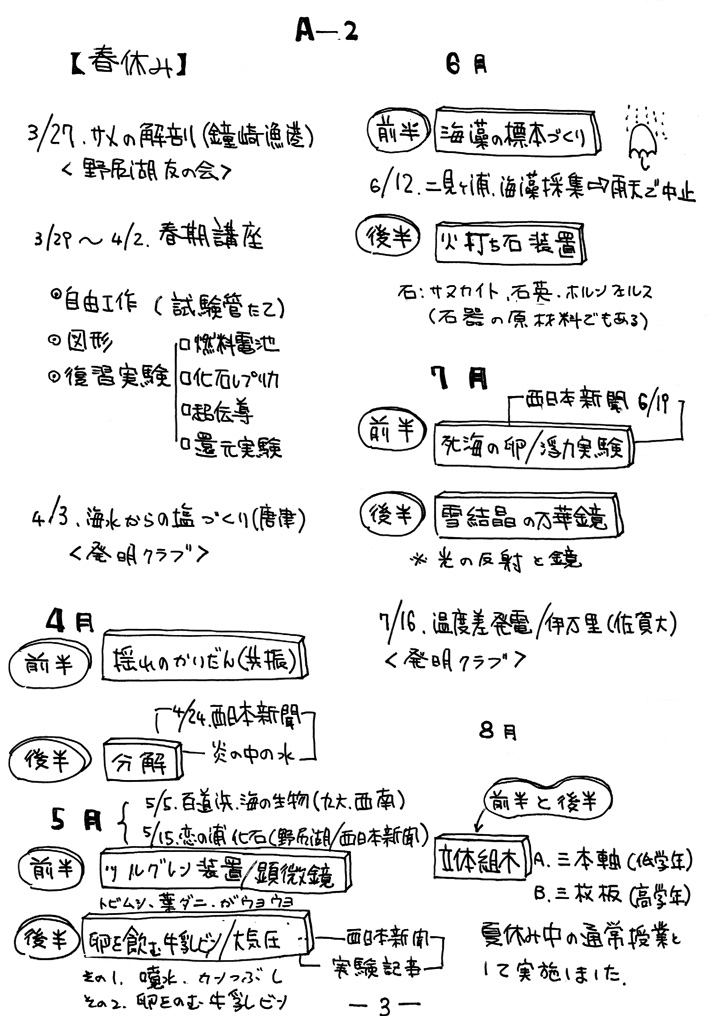 A—2
【春休み】
3/27. サメの解剖(鐘崎漁港)
<野尻湖友の会>
3/29〜4/2. 春期講座
◎自由工作 (試験管たて)
◎図形
◎復習実験
□燃料電池
□化石レプリカ
□超伝導
□還元実験
4/3. 海水からの塩づくり(唐津)
<発明クラブ>
4月
前半 揺れのかいだん(共振)
4/24.西日本新聞
後半 分解 炎の中の水
5月
5/5.百道浜.海の生物(九大.西南)
5/15.恋の浦化石(野尻湖/西日本新聞)
前半 ツルグレン装置/顕微鏡
トビムシ、葉ダニ・がウヨウヨ
後半 卵を飲む牛乳ビン/大気圧
西日本新聞
実験記事
その1. 噴水、カンつぶし
その2. 卵をのむ牛乳ビン
6月
前半 海藻の標本づくり
6/12.二見ヶ浦.海藻採集⇨雨天で中止
後半 火打ち石装置
石:サヌカイト、石英、ホルンフェルス
(石器の原材料でもある)
7月
西日本新聞 6/19
前半 死海の卵/浮力実験
後半 雪結晶の万華鏡
※光の反射と鏡
7/16.温度差発電/伊万里(佐賀大)
<発明クラブ>
8月
前半と後半
立体組木
A.三本軸(低学年)
B.三枚板(高学年)
夏休み中の通常授業と
して実施しました.
—3—